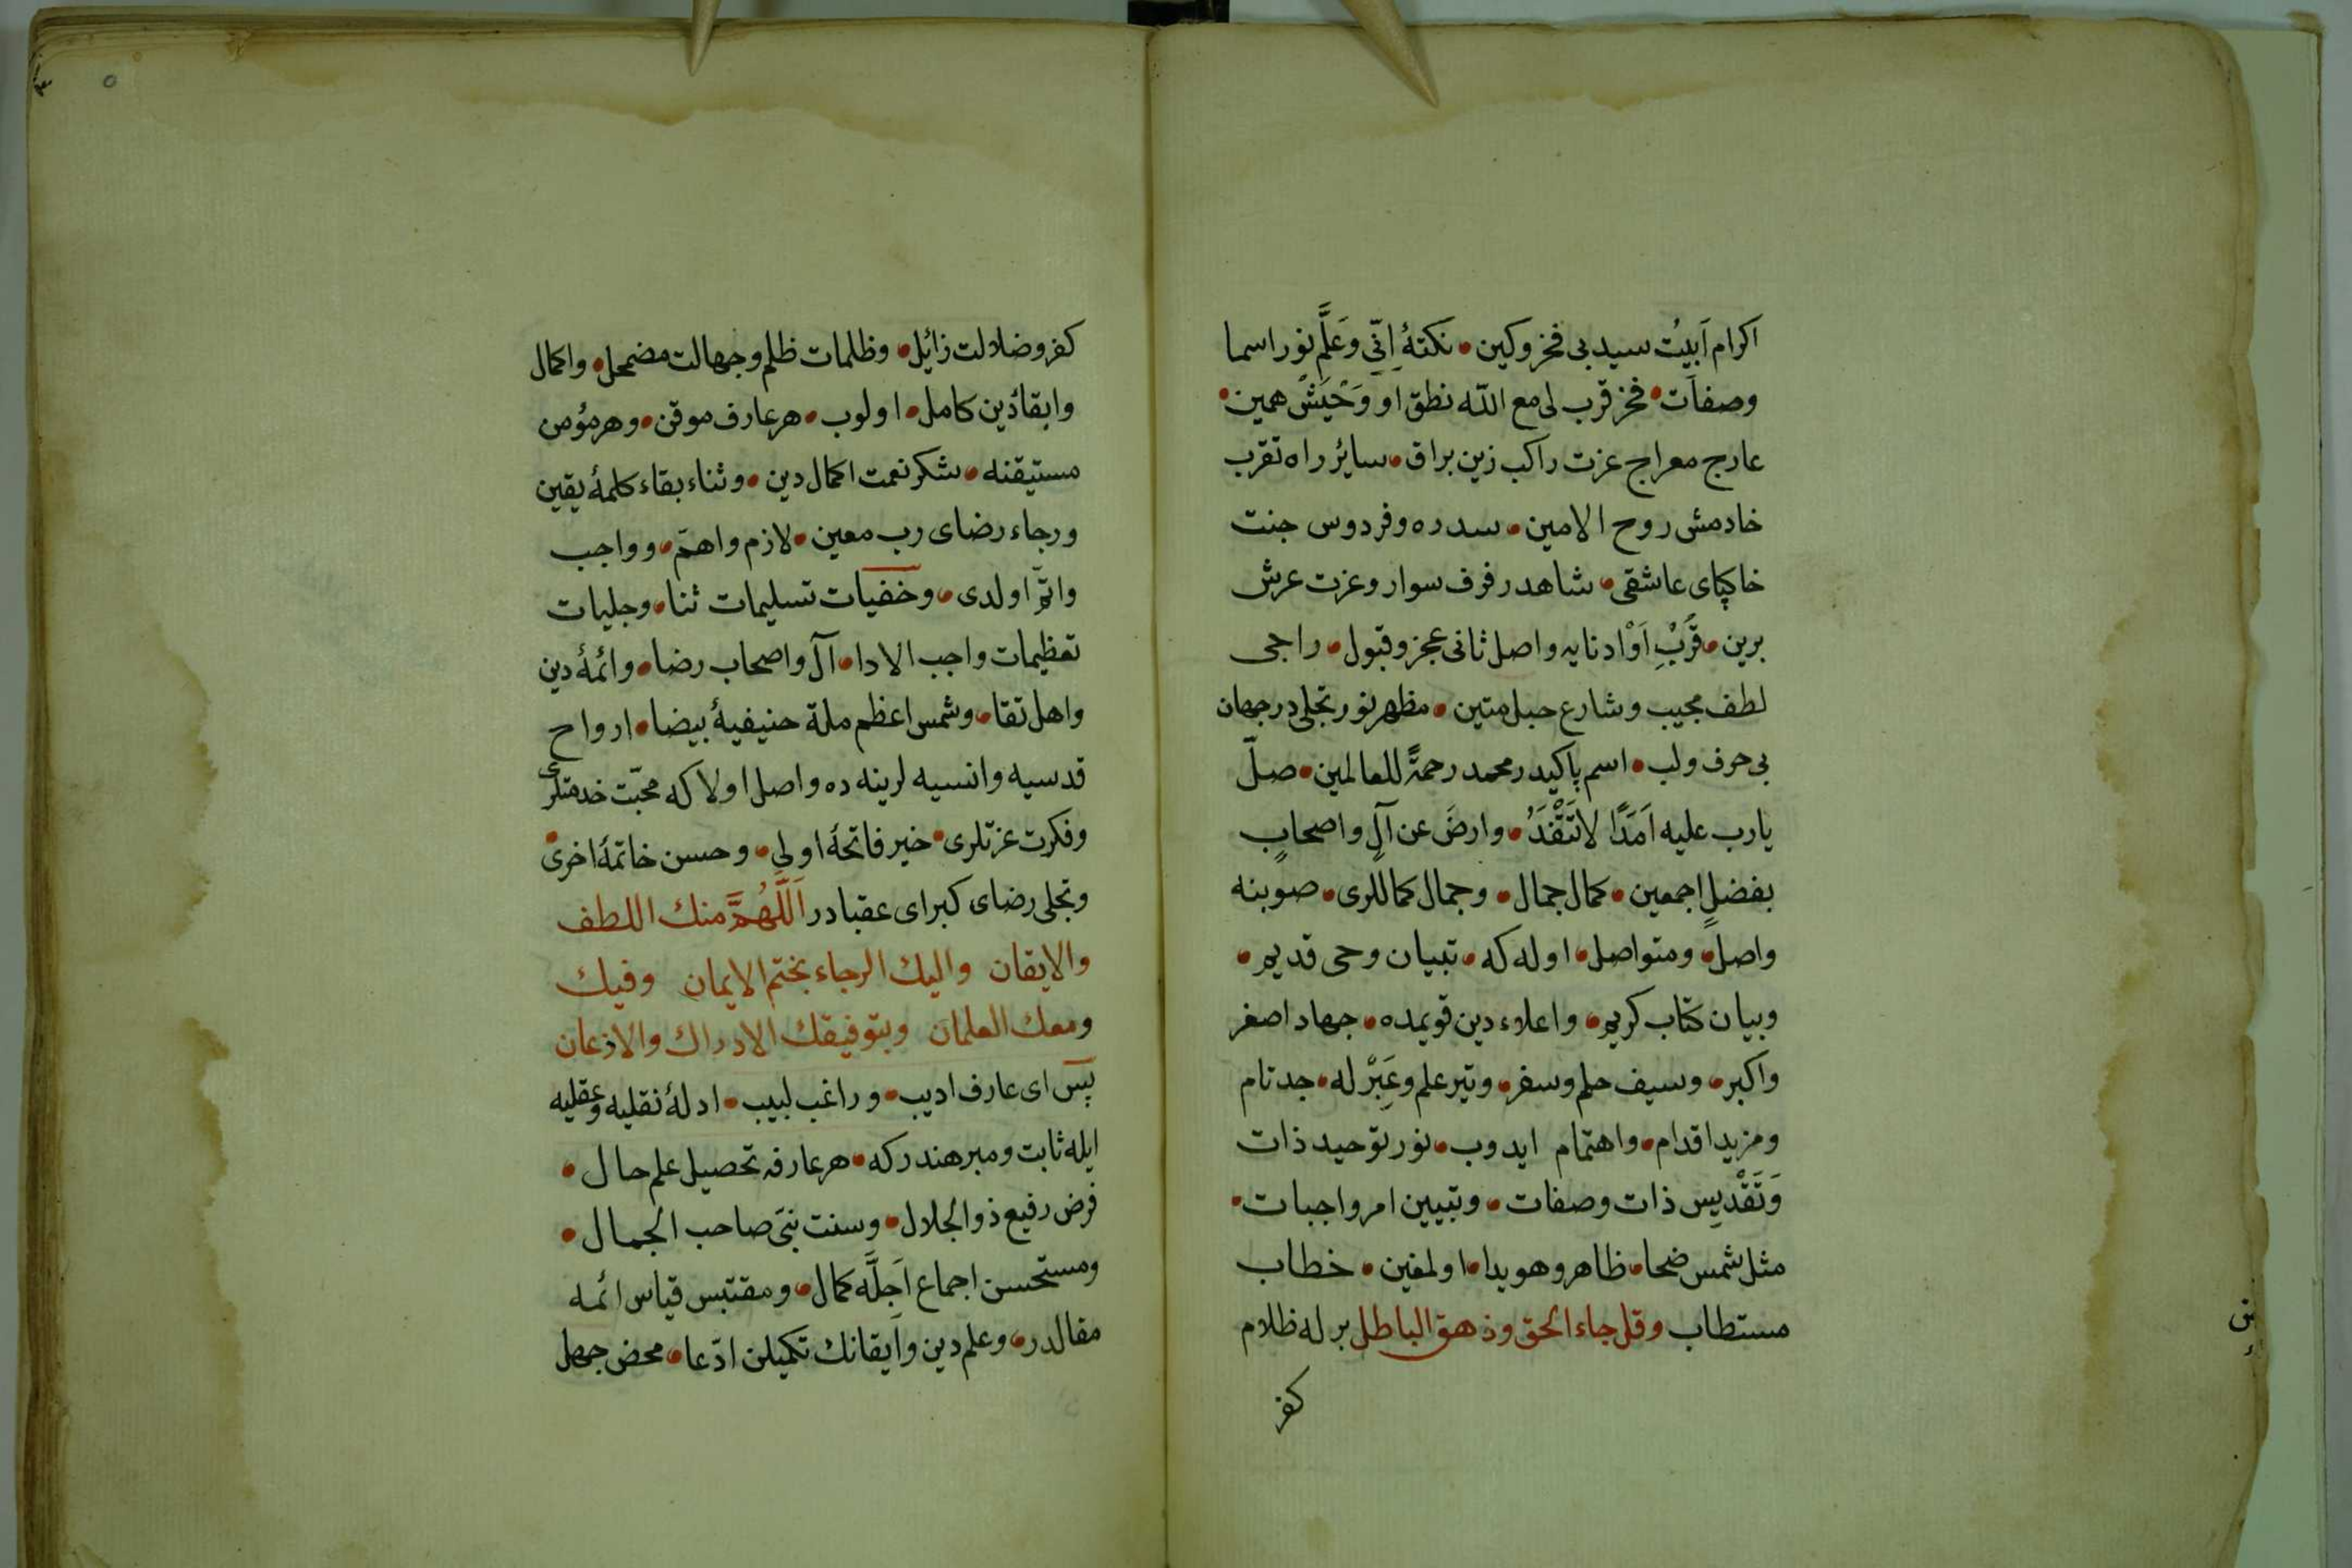 اكرام اَبيتُ سيد بی فخر وكين • نكتهٔ اِنّی وَعَلَّم نور اسما
وصفات • فخر قرب لی مع الله نطق او وَحْيَشْ همين •
عارج معراج عزت راكب زين براق • سائر راه تقرب
خادمش روح الامين • سدره و فردوس جنت
خاكپای عاشقی • شاهد رفرف سوار وعزت عرش
برين • قُرْبِ اَوْ ادنايه واصل ثانی عجز وقبول • راجی
لطف مجيب وشارع حبل متين • مظهر نور تجلی در جهان
بی حرف ولب • اسم پاكيدر محمد رحمةً للعالمين • صلّ
يارب عليه اَمَدًا لاتَنْفَدُ • وارضَ عن آلٍ واصحابٍ
بفضلٍ اجمعين • كمال جمال • وجمال كماللری • صوبنه
واصل • ومتواصل • اوله كه • تبيان وحی قديم •
وبيان كتاب كريم • واعلاء دين قويمده • جهاد اصغر
واكبر • وسيف حلم وسفر • وتير علم وعِبَرْ له • جد تام
ومزيد اقدام • واهتمام ايدوب • نور توحيد ذات
وَتَقْدِيسِ ذات وصفات • وتبيين امر واجبات •
مثل شمس ضحا • ظاهر وهويدا • اولمغين • خطاب
مستطاب وقل جاء الحق وذهق الباطل بر له ظلام
كفر
كفر وضلالت زائل • وظلمات ظلم وجهالت مضمحل • واكمال
وابقاء دين كامل • اولوب • هر عارف موقن • وهر مؤمن
مستيقنه • شكر نعمت اكمال دين • وثناء بقاء كلمهٔ يقين
ورجاء رضای رب معين • لازم واهمّ • وواجب
واتمّ اولدی • وخفيات تسليمات ثنا • وجليات
تعظيمات واجب الادا • آل واصحاب رضا • وائمهٔ دين
واهل تقا • وشمس اعظم ملة حنيفيهٔ بيضا • ارواح
قدسيه وانسيه لرينه ده واصل اولا كه محبّت خدمتلری
وفكرت عزتلری • خير فاتحهٔ اولی • وحسن خاتمهٔ اخری •
وتجلی رضای كبرای عقبادر اَللّهُمَّ منك اللطف
والايقان واليك الرجاء بختم الايمان وفيك
ومعك العلمان وبتوفيقك الادراك والاذعان
پس ای عارف اديب • وراغب لبيب • ادلهٔ نقليه وعقليه
ايله ثابت ومبرهندر كه • هر عارفه تحصيل علم حال •
فرض رفيع ذو الجلال • وسنت نبیّ صاحب الجمال •
ومستحسن اجماع اَجِلَّه كمال • ومقتبس قياس ائمه
مقالدر • وعلم دين وايقانك تكميلن ادّعا • محض جهل